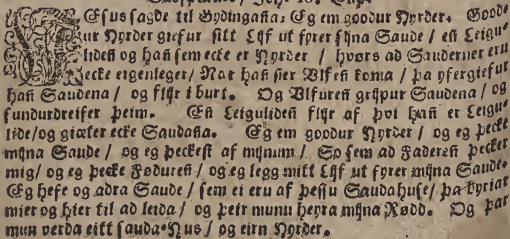 JEsus sagde til Gydingaña: Eg em goodur Hyrder. Good-
ur Hyrder giefur sitt Lijf ut fyrer sijna Saude / eñ Leigu-
lideñ og hañ sem ecke er Hyrder / hvørs ad Sauderner eru
ecke eigenleger / Nar hañ sier Vlfeñ koma / þa yfergiefur
hañ Saudena / og flijr i burt. Og Vlfureñ grijpur Saudena / og
sundurdreifer þeim. Eñ Leiguliden flijr af þvi hañ er Leigu-
lide / og giæter ecke Saudaña. Eg em goodur Hyrder / og eg þecke
mijna Saude / og eg þeckest af mijnum / So sem ad Faderen þecker
mig / og eg þecke Føduren / og eg legg mitt Lijf ut fyrer mijna Saude.
Eg hefe og adra Saude / sem ei eru af þessu Saudahuse / þa byriar
mier og hier til ad leida / og þeir munu heyra mijna Rødd. Og þar
mun verda eitt sauda-Hus / og eirn Hyrder.